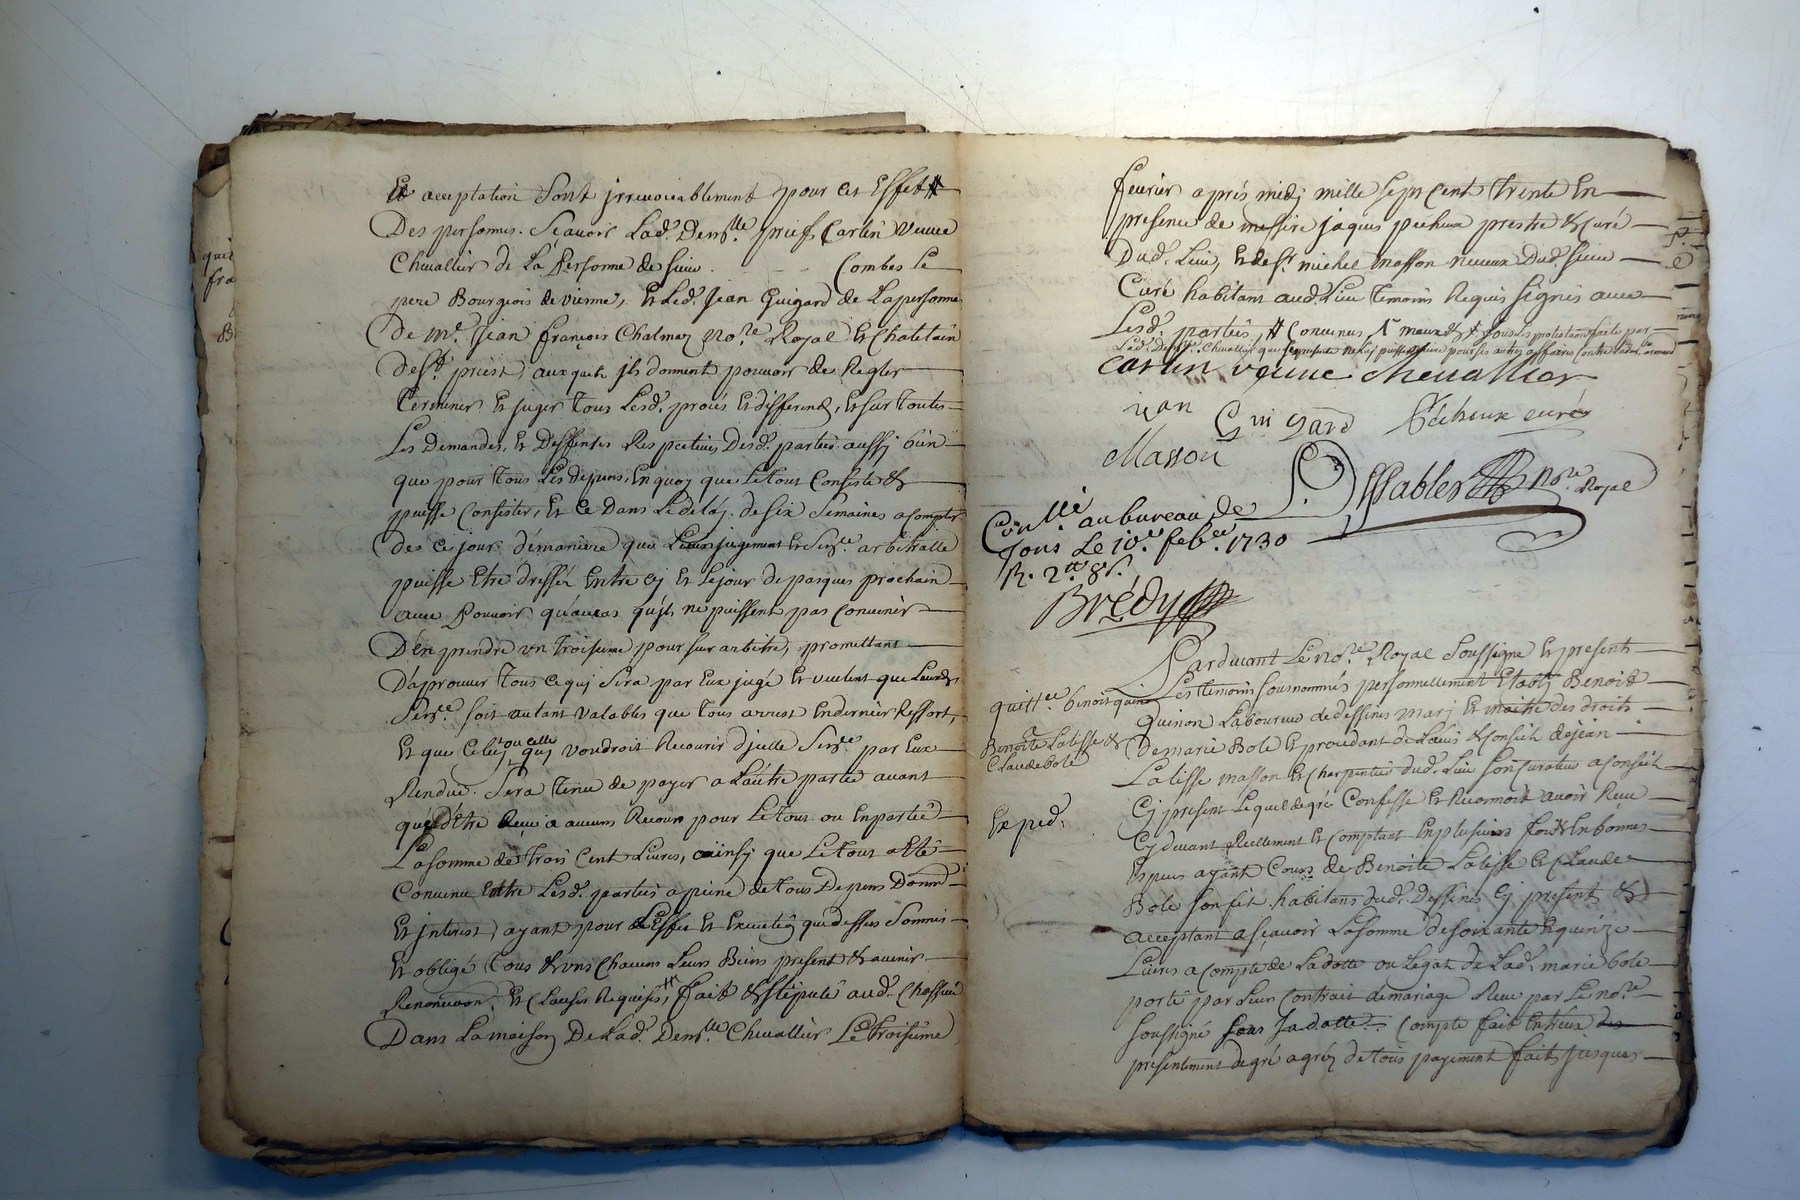 Et acceptation sont jrreuocablement pour cet Effet #
Des personnes. Scauoir Lad. Demlle prief, Carlin Veuue
Cheuallier de La Personne de sieur Combes Le
pere Bourgeois de vienne, Et Led. Jean Guigard de La personne
De Me. Jean françois Chalmaz Nore. Royal Et Chatelain
De st. priest, auxquels jls donnent pouuoir de Regler
Terminer Et juger Tous Lesd. procés Et differends, Et sur Toutes
Les Demandes, Et Deffenses Respectiues Desd. parties aussj bien
que pour Tous Les depens, En quoy que Le tout Consiste &
puisse Consister, Et Ce Dans Le delaj de six Semaines a Compter
des ce jour de maniere que jugement Et Sence. arbitralle
puisse Etre dressée Entre Cj Et Le jour de pasques prochain
auec Pouuoir qu'au cas qu'jls ne puissent pas Conuenir
D'en prendre vn Troisieme pour sur arbitre, promettant
D'aprouuer Tous ce quj sera par Eux jugé Et veulent que Leurd.
Sence. soit autant valables que Tous arrest En dernier Ressort,
Et que Celuj ou celle quj voudroit Recourir d'jcelle Sence par Eux
Rendue. Sera Tenu de payer a L'autre partie auant
que D'être Reçu a aucuns Recours pour Le Tout ou En partie
La somme de Trois Cent Liures, ainsj que Le tout a Eté
Conuenu Entre Lesd. parties a peine de tous Depens Domd.
Et jnterest, ayant pour L'Effet Et Execution que dessus Soumis
Et obligé Tous & vns Chacuns Leurs Biens present & auenir
Renonciaon. Et Clauses Requises, # fait & stipulé aud. Chassieu
Dans La maison De Lad. Demlle. Cheuallier Le Troisieme
feurier aprés midj mille sept Cent trente En
presence de messire jaques pecheux prestre & Curé
Dud. Lieu, Et de sr. michel masson neueux dud. sieur
Curé habitant aud. Lieu Temoins Requis signés auec
Lesd. parties, # Conuenus, sous les protestations faite par
Lad. Demlle. Cheuallier que Le present ne luj puisse nuire pour ses autres affaires Contre
carlin veuue cheuallier
jean Guigard Pécheux curé
Masson
Dessables Nore. Royal
Conllé au bureau de St.
Fons Le 10e. feber. 1730
R. 2tt 8s.
Brédy
Pardeuant Le Nore. Royal Soussigné Et present
quittce benoit quinon Les Temoins sousnommés personnellement Etably Benoit
Quinon Laboureur de dessines marj Et maitre des droits
a Benoite Latisse & De marie Bole Et procedant de L'auis & Conseil de jean
Claude bole Latisse masson Et Charpentier dud. Lieu son Curateur a Conseil
Cj present Lequel de gré Confesse Et Reconnoit auoir Reçu
Exped. Cy deuant Reellement Et Comptant En plusieurs fois & En bonnes
Espeus ayant Cours de Benoite Latisse Et Claude
Bole son fils habitans dud. Dessines Cj present &
acceptant a sçauoir La somme de soixante Et quinze
Liures a Compte de La dotte ou Legat de Lad. marie bole
porté par Leur Contrait de mariage Reçu par Le Nore.
soussigné sous sa datte. Compte fait Entreux
presentement de gré a gré de tous payement fait jusques